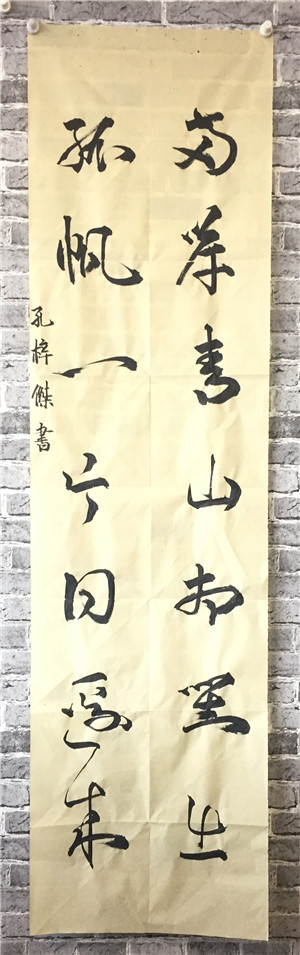 两岸青山相对出
孤帆一片日边来
孔梓傑书